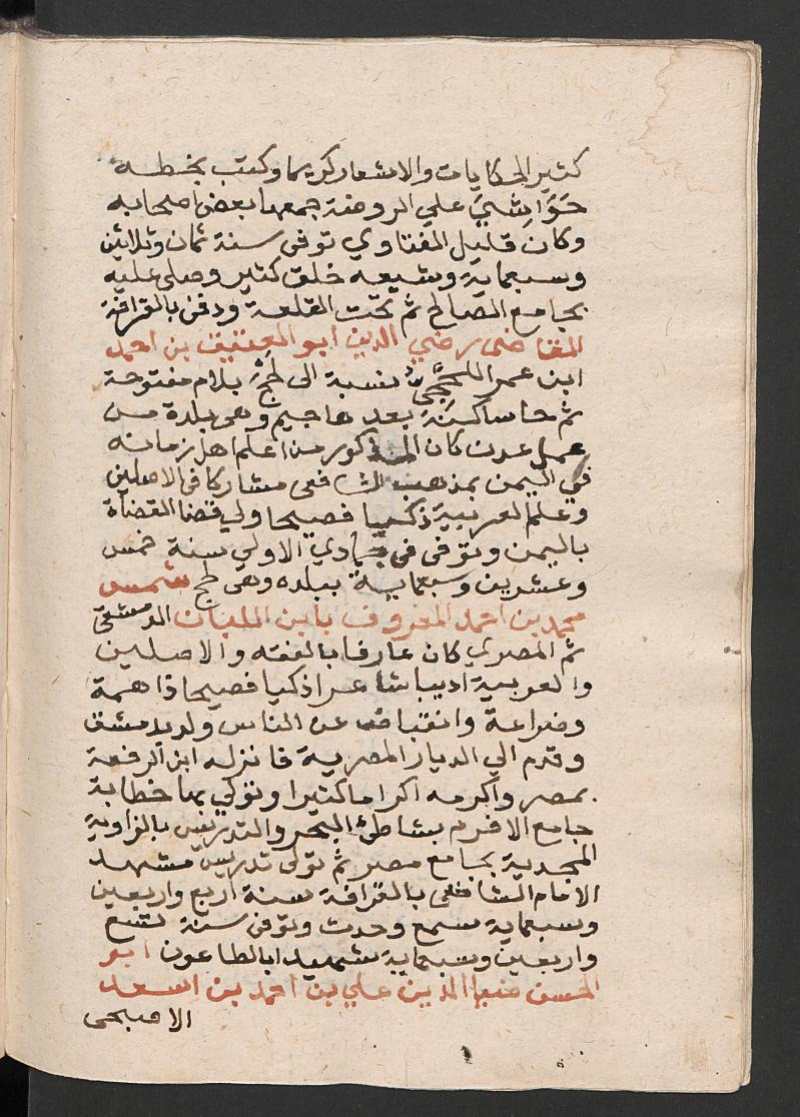 كثير الحكايات والاشعار كريما وكتب بخطه
حَوَاشِيَ علي الروضة جمعها بعض اصحابه
وكان قليل الفتاوي توفى سنة ثمان وثلاثين
وسبعماية وشيعه خلق كثير وصلى عليه
بجامع الصالح ثم تحت القلعة ودفن بالقرافة
القاضى رضي الدين ابو العتيق بن احمد
ابن عمر اللحجي نسبة الى لحج بلام مفتوحة
ثم حا ساكنة بعدها جيم وهى بلدة من
عمل عدن كان المذكور من اعلم اهل زمانه
في اليمن بمذهب الشافعى مشاركا فى الاصلين
وعلم العربية ذكيا فصيحا ولي قضا القضاة
باليمن وتوفى فى جمادي الاولي سنة خمس
وعشرين وسبعماية ببلده وهى لحج شمس
محمد بن احمد المعروف بابن اللبان الدمشقى
ثم المصري كان عارفا بالفقه والاصلين
والعربية اديبا شاعرا ذكيا فصيحا ذا همة
وضراعة وانقباض عن الناس ولد بدمشق
وقدم الي الديار المصرية فانزله ابن الرفعة
بمصر واكرمه اكراما كثيرا وتولي بها خطابة
جامع الافرم بشاطئ البحر والتدريس بالزاوية
المجدية بجامع مصر ثم تولى تدريس مشهد
الامام الشافعى بالقرافة سنة اربع واربعين
وسبعماية سمع وحدث وتوفى سنة تسع
واربعين وسبعماية شهيدا بالطاعون ابو
الحسن ضيا الدين علي بن احمد بن اسعد
الاصبحى